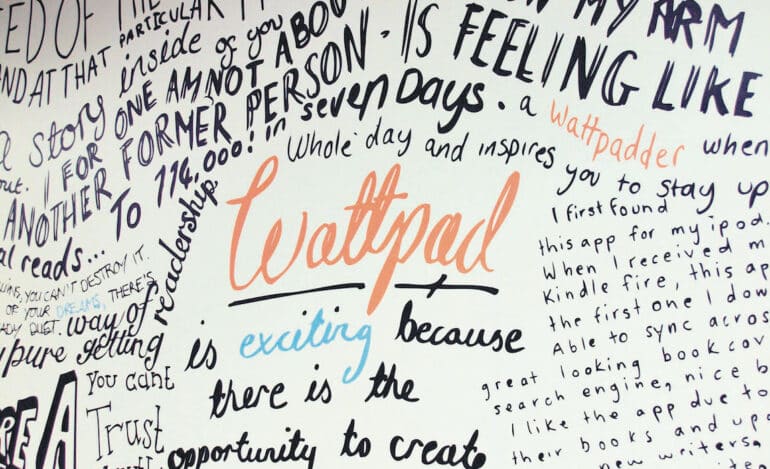 ED OF THE
PARTICULAR
AND AT THAT
inside of you
a story
ONE AM NOT ABOU
I FOR
ANOTHER FORMER PERSON.
out.
TO 114,000! in seven Days.
al reads...
readership.
YOU CAN'T DESTROY IT.
OF YOUR DREAMS, THERE'S
way of
pure getting
You can't
Trust
ON MY ARM
IS FEELING LIKE
a wattpadder when
Whole day and inspires
you to stay up
Wattpad
is exciting because
there is the
opportunity to create
I first found
this app for my ipod.
When I received m
Kindle fire, this ap
the first one I dow
Able to sync acros
great looking book cov
search engine, nice b
I like the app due to
their books and upd
new writers